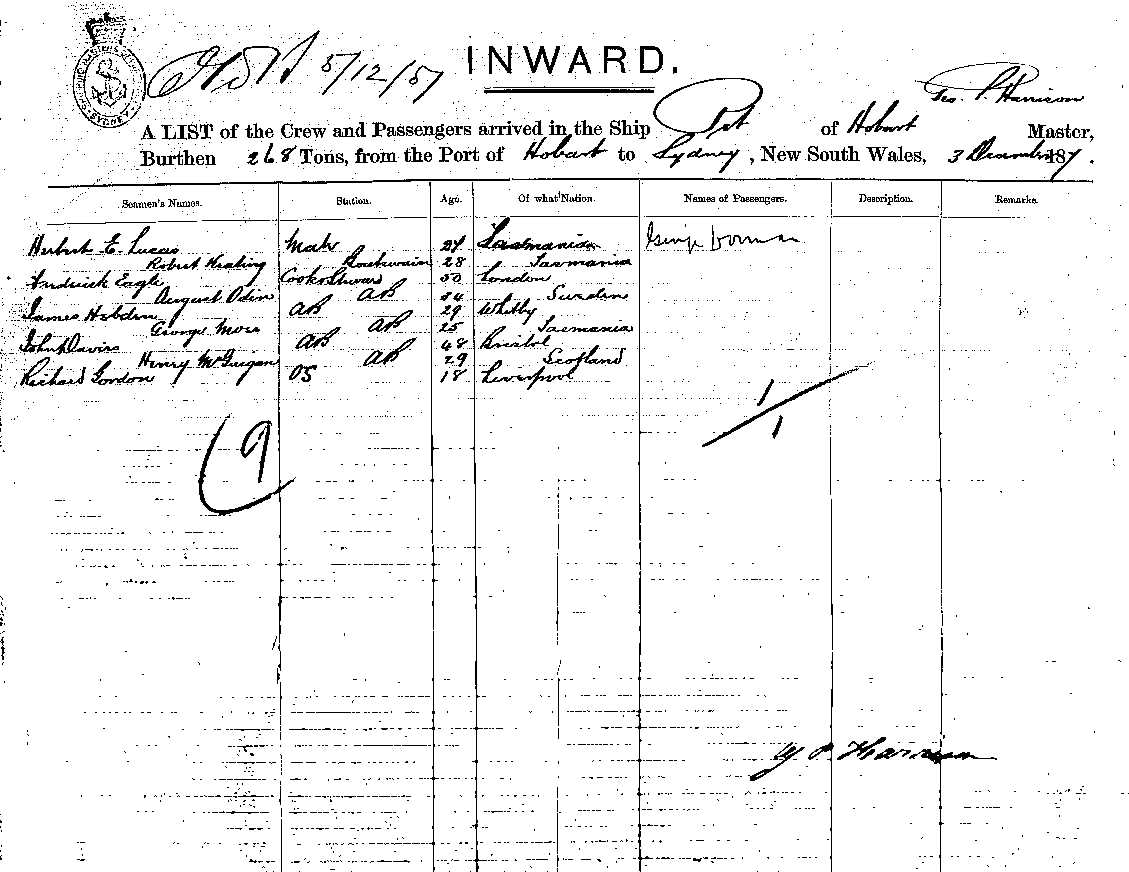 5/12/87 INWARD.
Geo. P. Harrison
A LIST of the Crew and Passengers arrived in the Ship Pet of Hobart Master,
Burthen 268 Tons, from the Port of Hobart to Sydney, New South Wales, 3 December 187.
SYDNEY
Seamen's Names. Station. Age. Of what Nation. Names of Passengers. Description. Remarks.
Herbert E. Lucas Mate 24 Tasmania George
Robert Keating Boatswain 28 Tasmania
Fredrick Eagle Cook & Steward 50 London
August Odin AB 34 Sweden
James Hebden AB 29 Whitby
George Moss AB 25 Tasmania
John Davies AB 48 Bristol
Henry McGuigan AB 29 Scotland
Richard Gordon OS 18 Liverpool
1/1
9
G P. Harrison